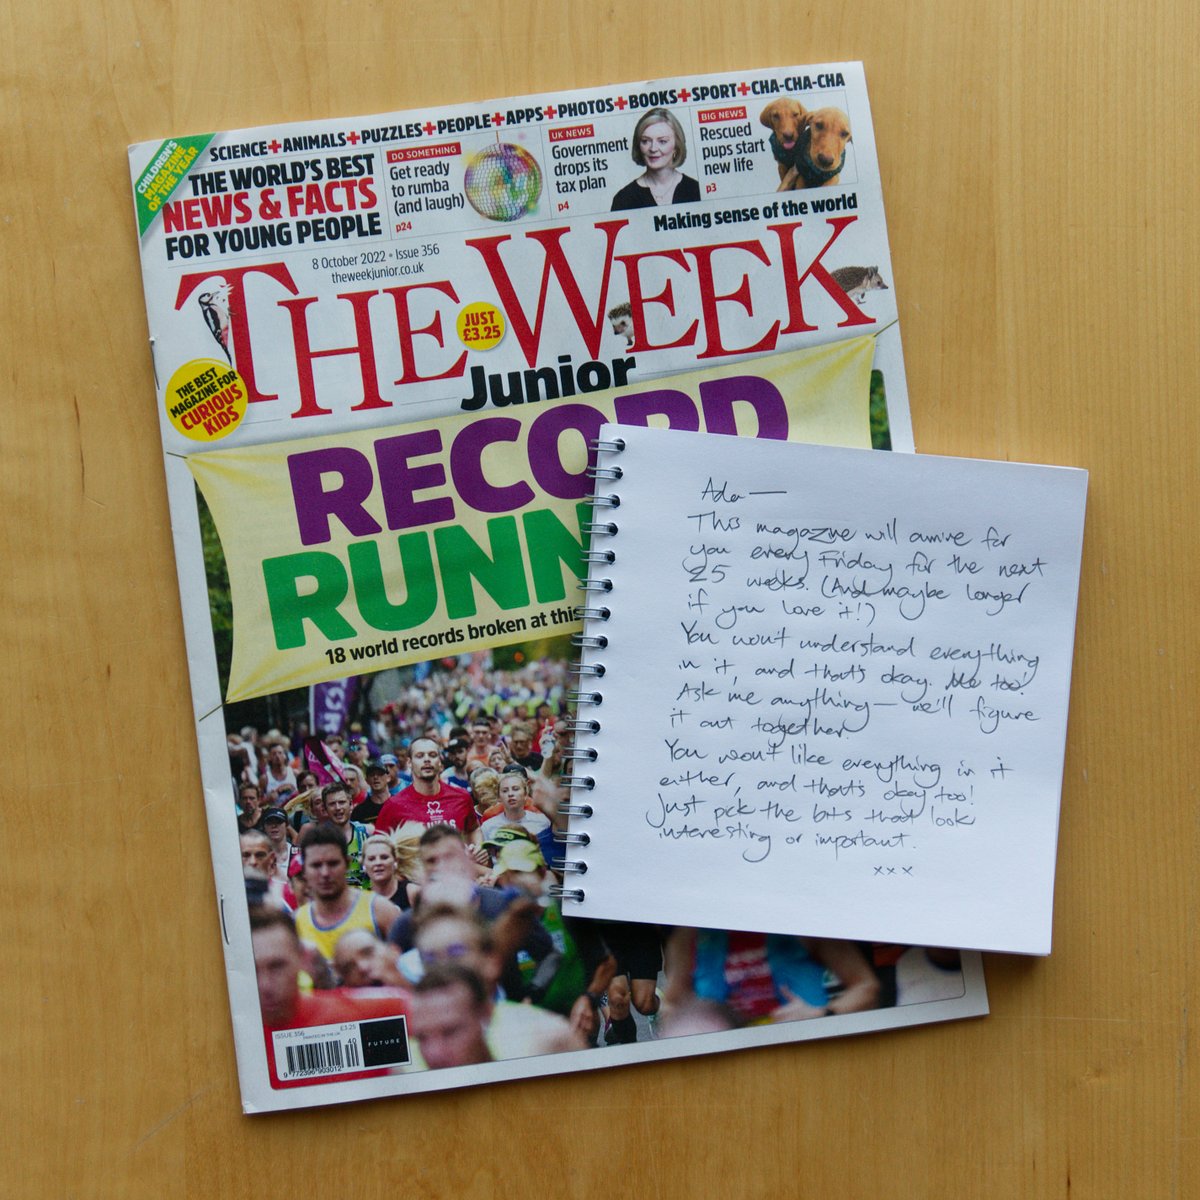 CHILDREN'S
MAGAZINE
OF THE YEAR
SCIENCE+ANIMALS+PUZZLES+PEOPLE+APPS+PHOTOS+BOOKS+SPORT+CHA-CHA-CHA
THE WORLD'S BEST
NEWS & FACTS
FOR YOUNG PEOPLE
DO SOMETHING
Get ready
to rumba
(and laugh)
p24
UK NEWS
Government
drops its
tax plan
p4
BIG NEWS
Rescued
pups start
new life
p3
Making sense of the world
8 October 2022 • Issue 356
theweekjunior.co.uk
THE WEEK
JUST
£3.25
Junior
THE BEST
MAGAZINE FOR
CURIOUS
KIDS
RECORD
RUNN
18 world records broken at this
Ada —
This magazine will arrive for
you every Friday for the next
25 weeks. (And maybe longer
if you love it!)
You won't understand everything
in it, and that's okay. Me too!
Ask me anything — we'll figure
it out together.
You won't like everything in it
either, and that's okay too!
Just pick the bits that look
interesting or important.
xxx
ISSUE 356
PRINTED IN THE UK
£3.25
40
9 772396 903012
FUTURE